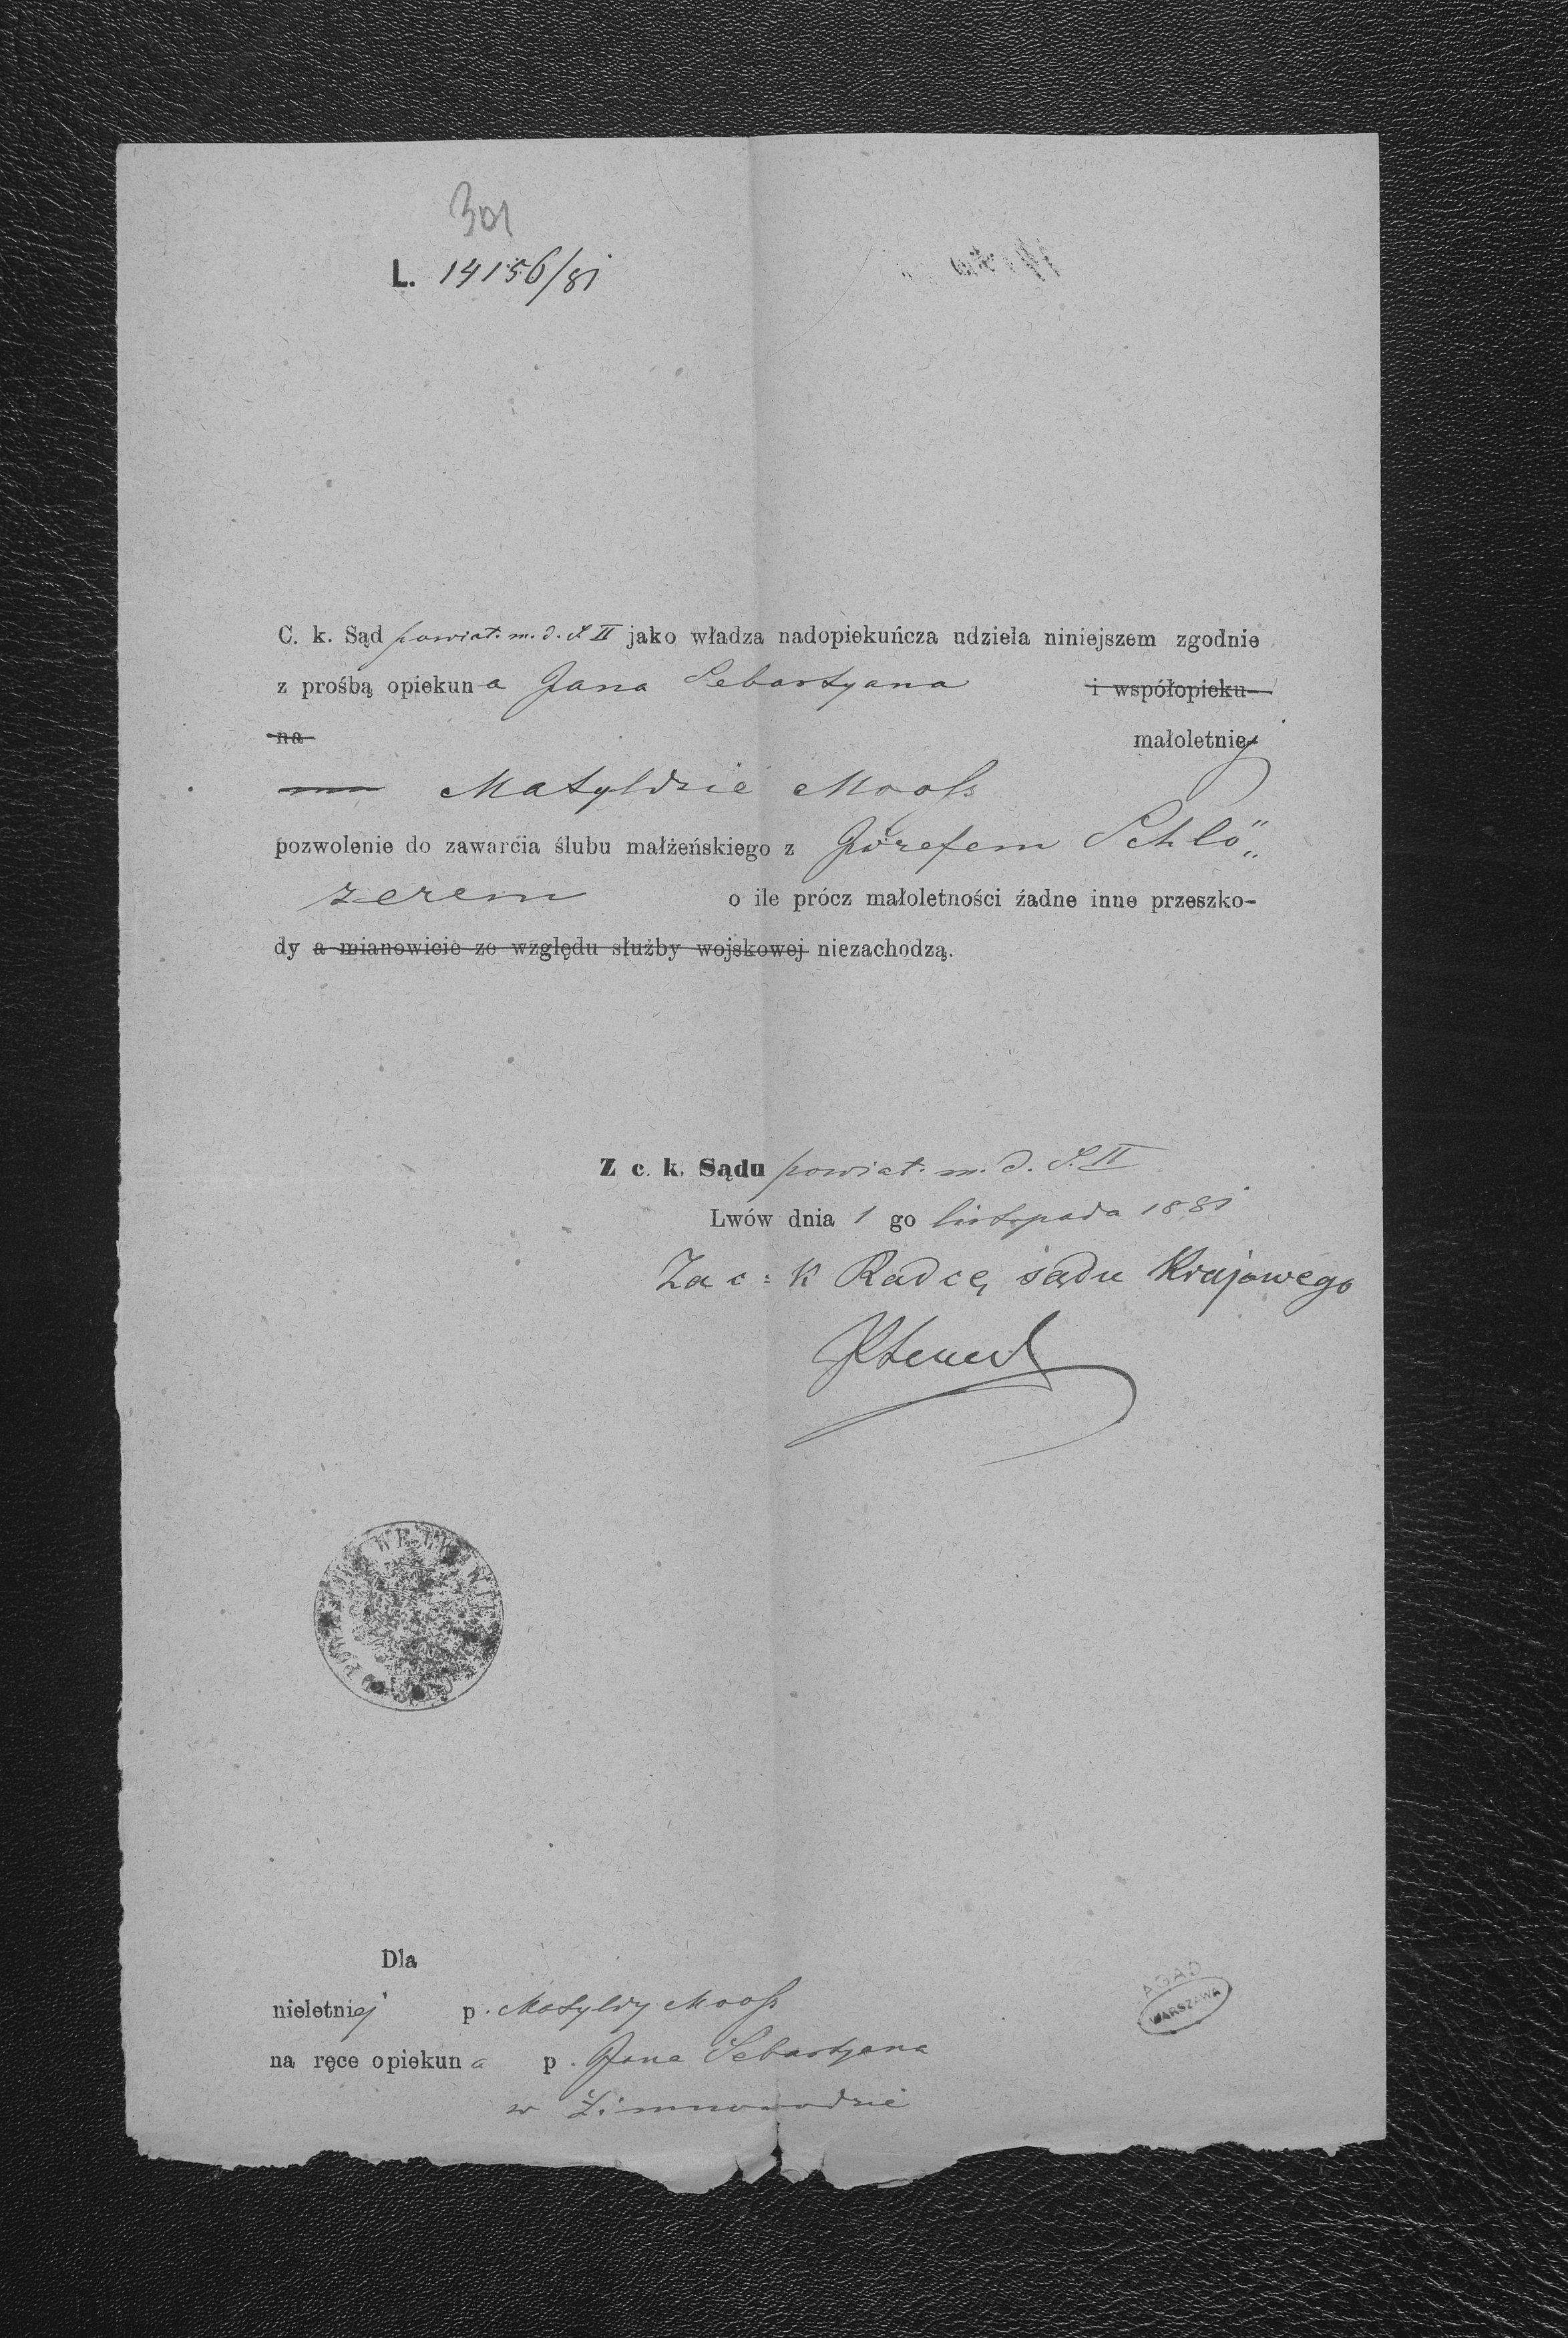 301
L. 14156/81
C. k. Sąd powiat. m. d. S. II jako władza nadopiekuńcza udziela niniejszem zgodnie
z prośbą opiekuna Jana Sebastyana i współopieku-
na małoletniej
Matyldzie Mooß
pozwolenie do zawarcia ślubu małżeńskiego z Józefem Schlö„
zerem o ile prócz małoletności źadne inne przeszko-
dy a mianowicie ze względu służby wojskowej niezachodzą.
Z c. k. Sądu powiat. m. d. S. II
Lwów dnia 1 go listopada 1881
Za c: K Radcę sądu Krajowego
Dla
nieletniej p. Matyldy Mooß
na ręce opiekuna p. Jana Sebastyana
w Zimnowodzie
AGAD
WARSZAWA